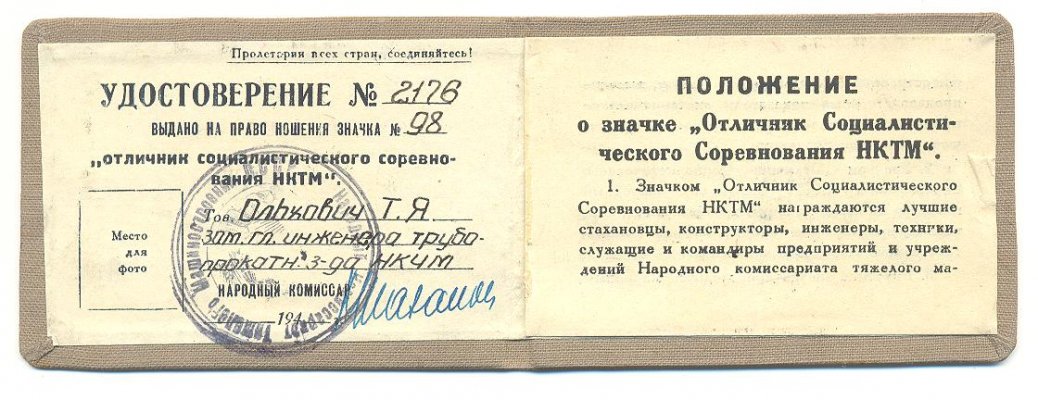 Пролетарии всех стран, соединяйтесь!
УДОСТОВЕРЕНИЕ № 2176
ВЫДАНО НА ПРАВО НОШЕНИЯ ЗНАЧКА № 98
„отличник социалистического соревно-
вания НКТМ“.
Место
для
фото
Тов. Олькович Т.Я
зам. гл. инженера трубо-
прокатн. з-да НКЧМ
НАРОДНЫЙ КОМИССАР
194
ПОЛОЖЕНИЕ
о значке „Отличник Социалисти-
ческого Соревнования НКТМ“.
1. Значком „Отличник Социалистического
Соревнования НКТМ“ награждаются лучшие
стахановцы, конструкторы, инженеры, техники,
служащие и командиры предприятий и учреж-
дений Народного комиссариата тяжелого ма-